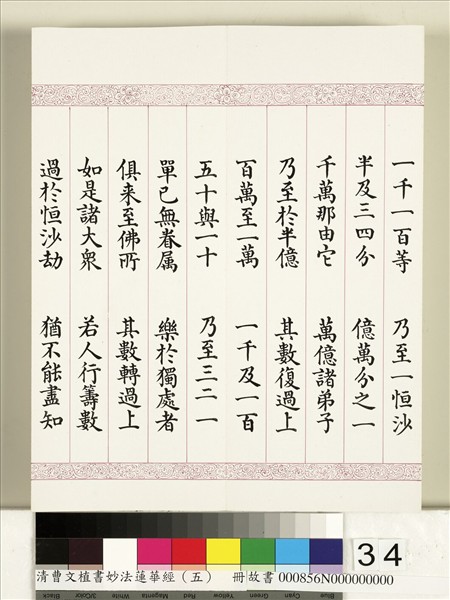 一千一百等　乃至一恒沙
半及三四分　億萬分之一
千萬那由它　萬億諸弟子
乃至於半億　其數復過上
百萬至一萬　一千及一百
五十與一十　乃至三二一
單己無眷属　樂於獨處者
俱来至佛所　其數轉過上
如是諸大衆　若人行籌數
過於恒沙劫　猶不能盡知
34
Black 3/Color White Magenta Red Yellow Green Cyan Blue
清曹文植書妙法蓮華經（五）　冊故書 000856N000000000